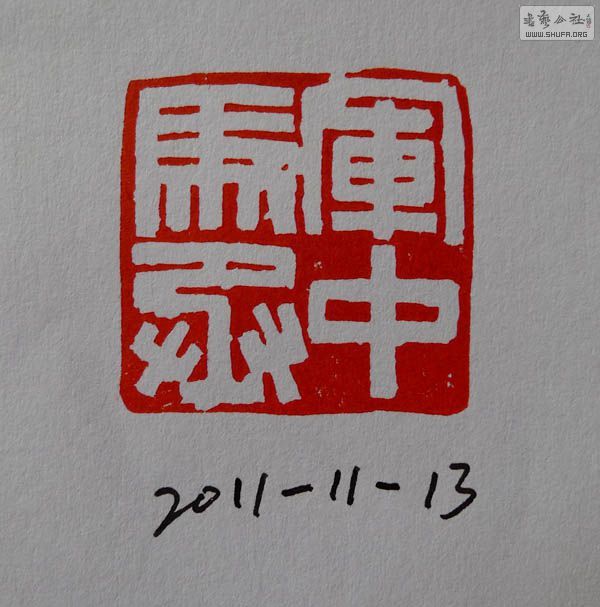 書藝公社
WWW.SHUFA.ORG
軍中
馬丞
2011-11-13